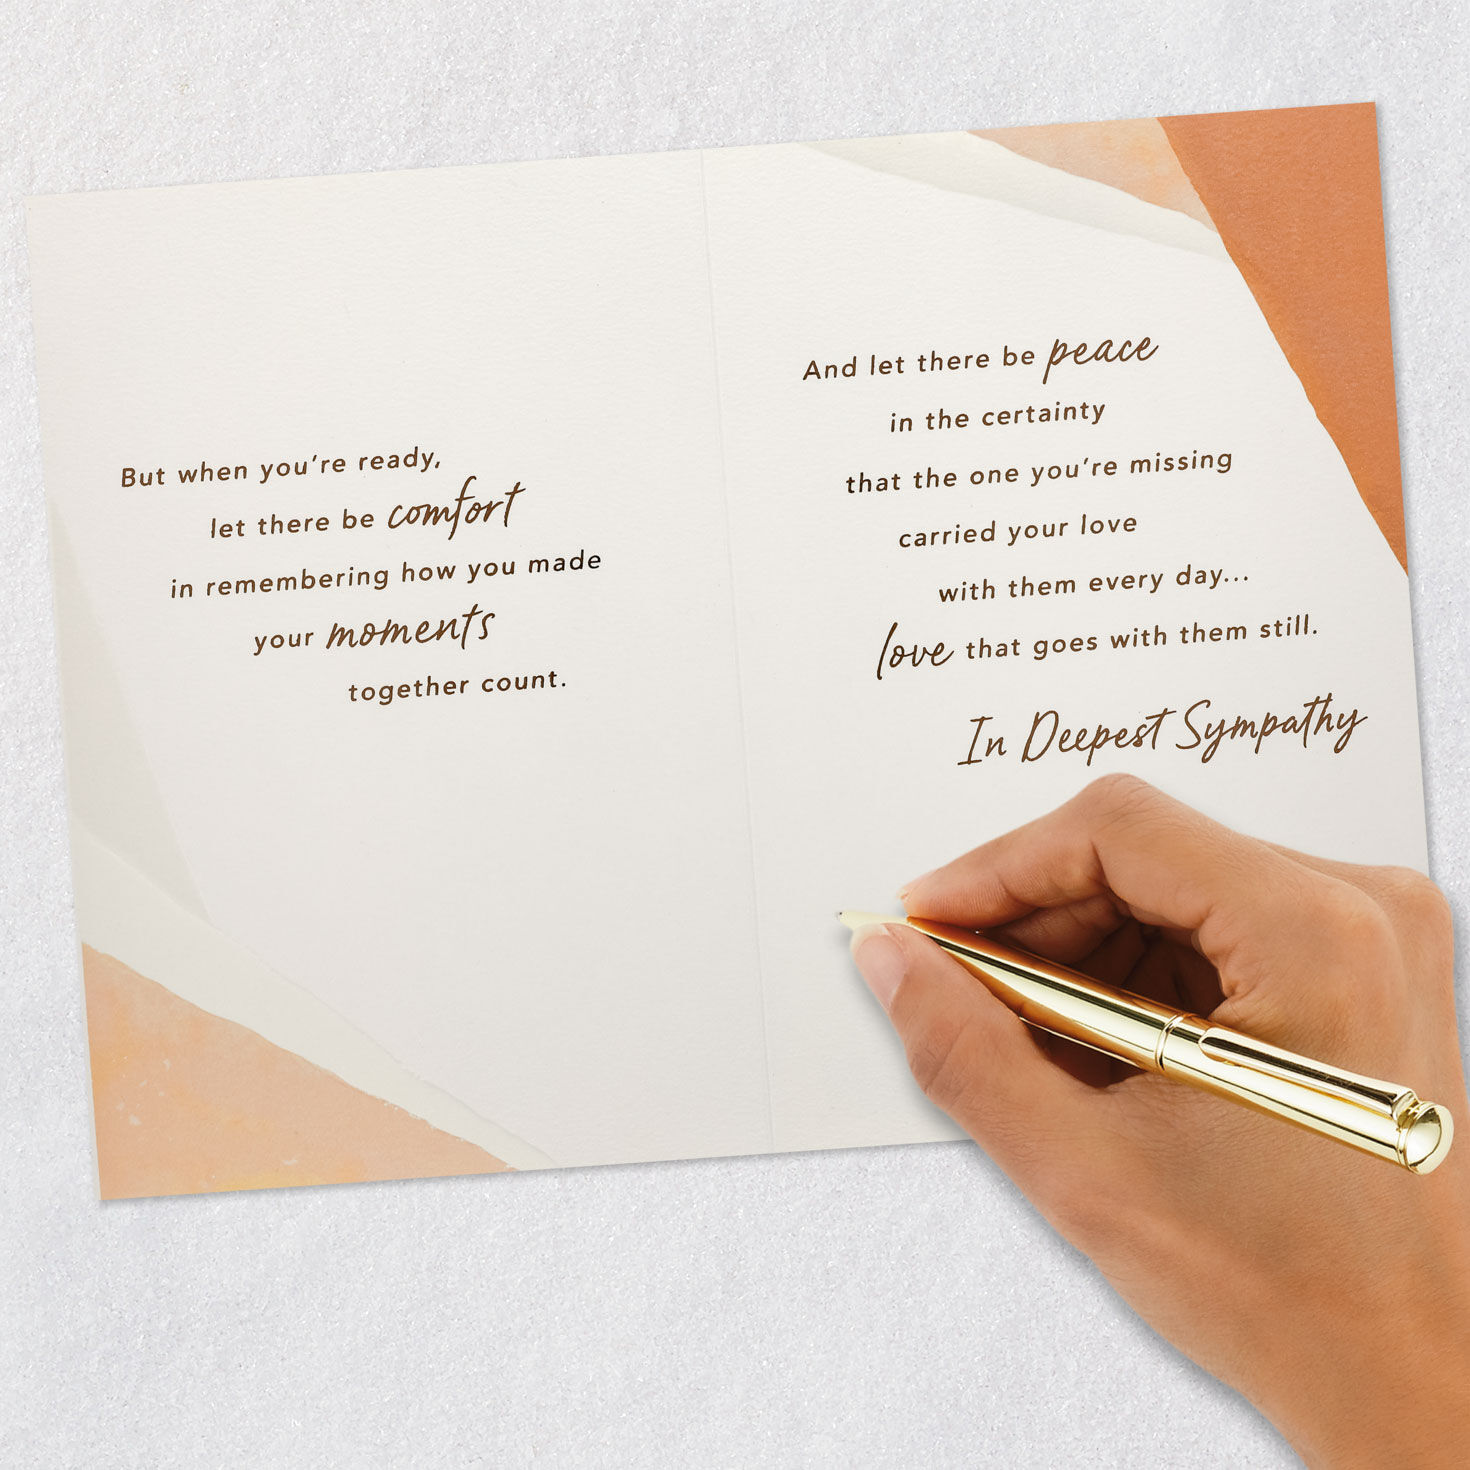 But when you're ready,
let there be comfort
in remembering how you made
your moments
together count.
And let there be peace
in the certainty
that the one you're missing
carried your love
with them every day...
love that goes with them still.
In Deepest Sympathy